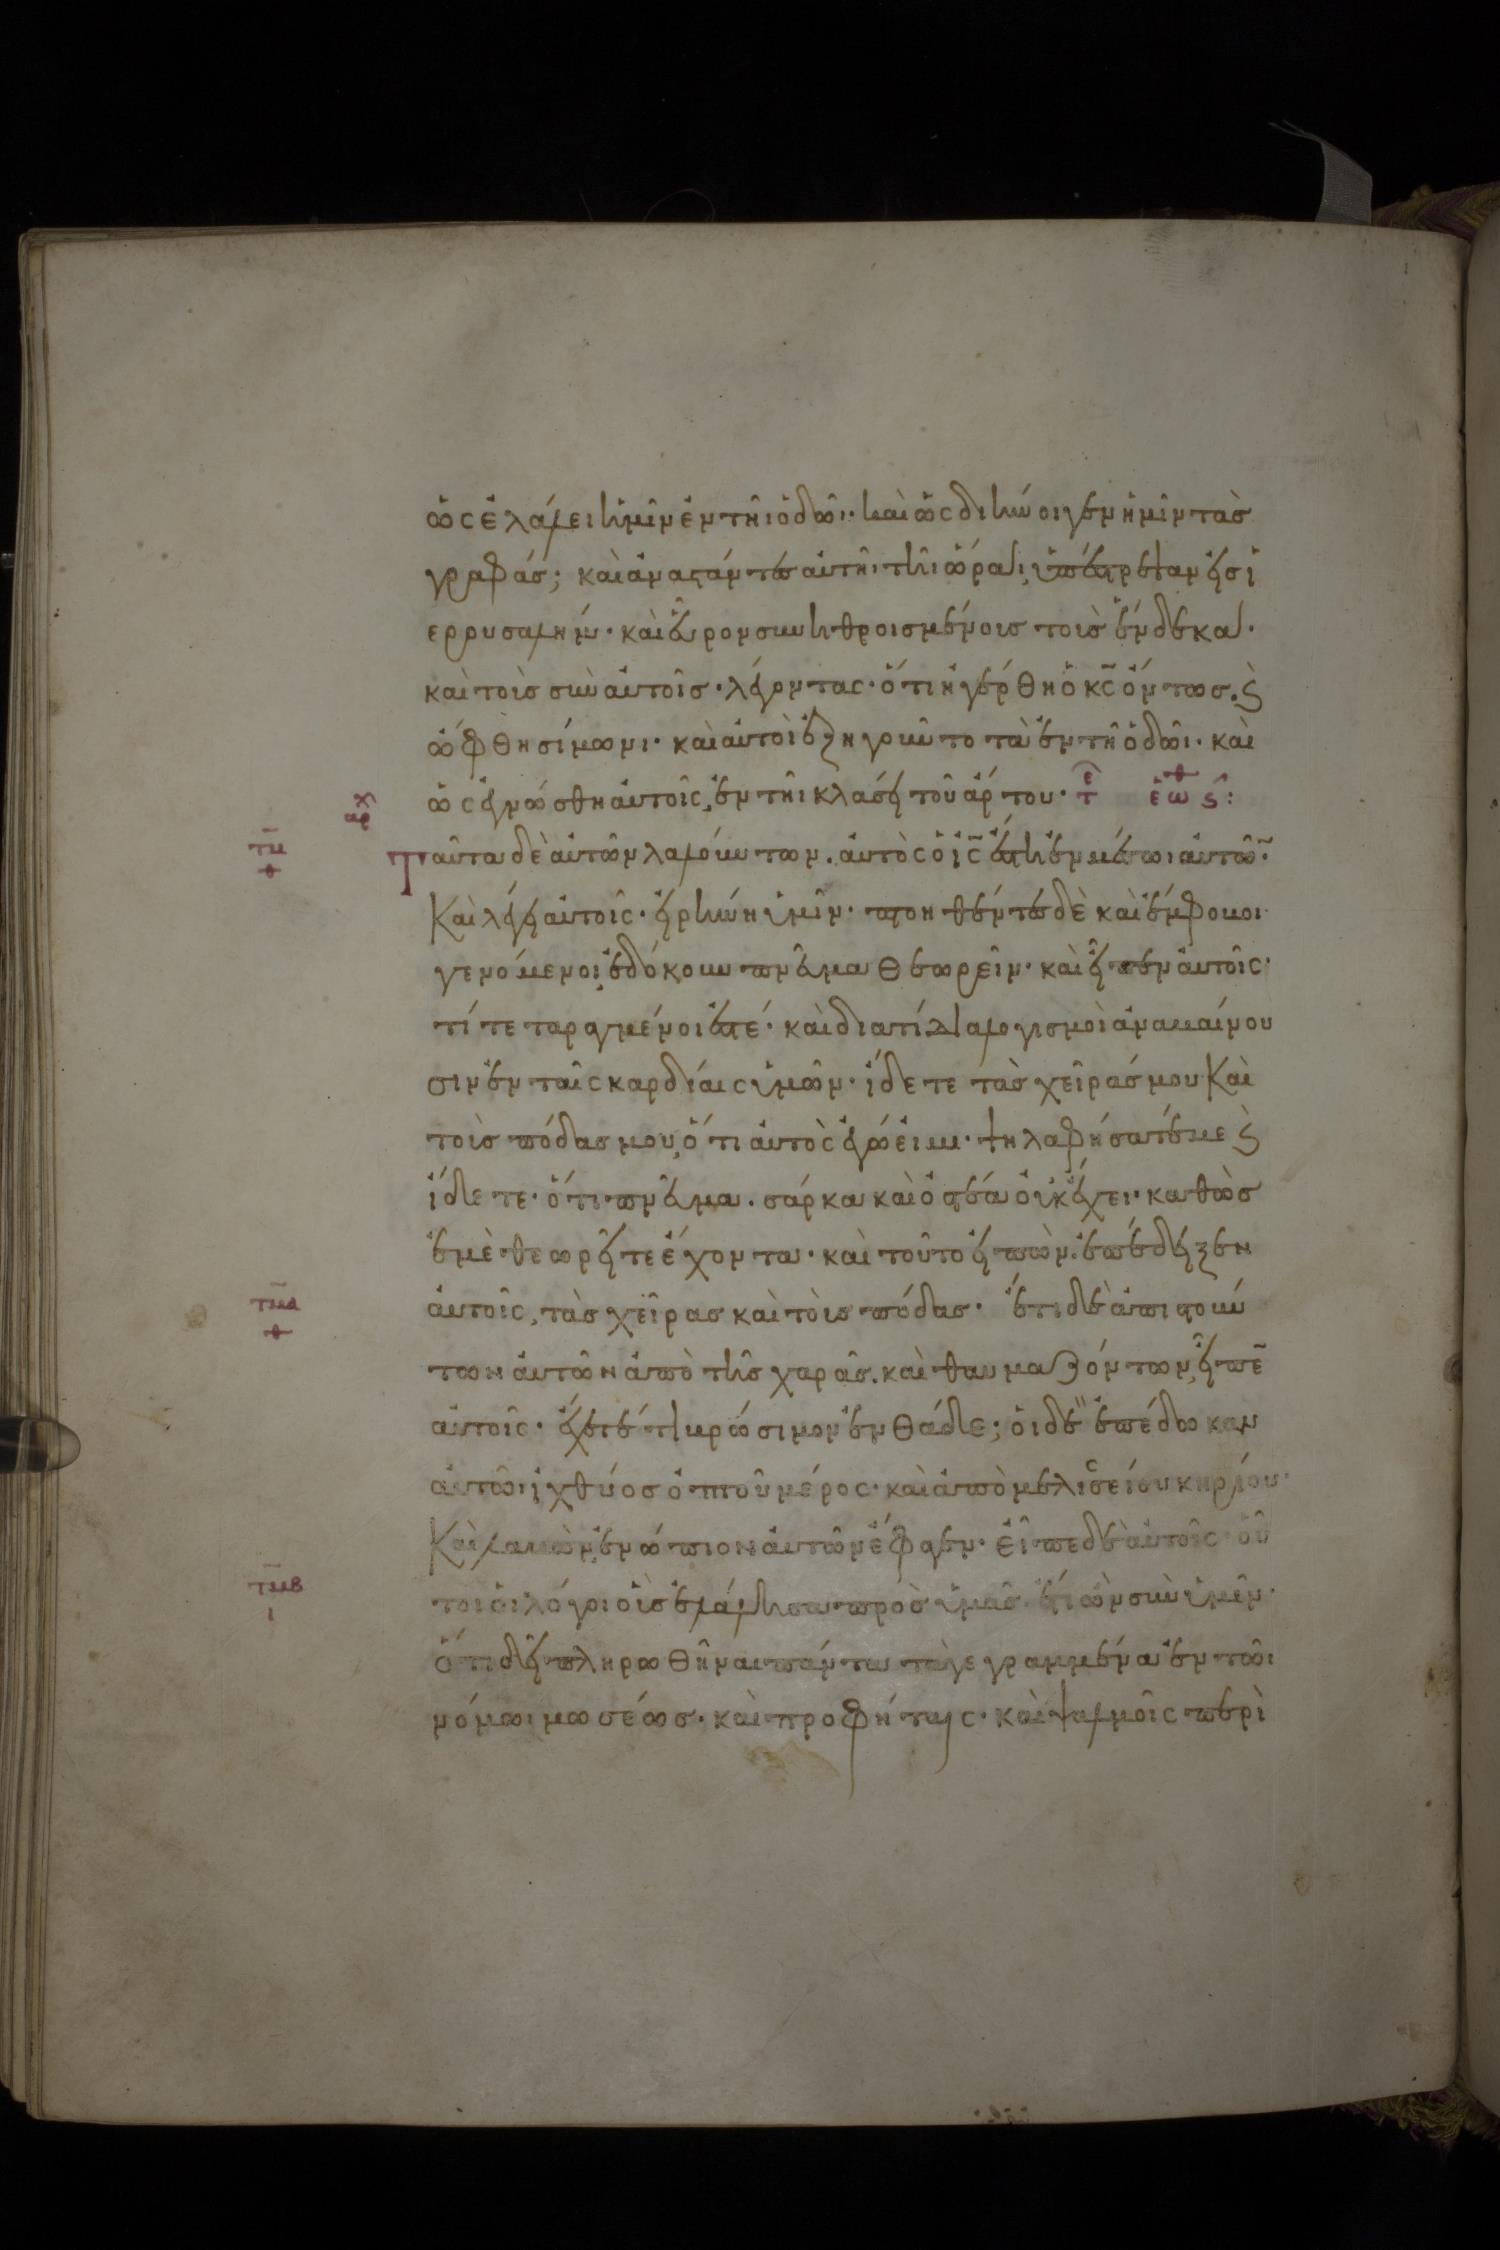 ὡς ἐλάλει ἡμῖν ἐν τῆι ὁδῶι· καὶ ὡς διήνοιγεν ἡμῖν τὰς
γραφάς; καὶ ἀναστάντες αὐτῆι τῆι ὥραι, ὑπέστρεψαν εἰς ἱ
ερουσαλήμ· καὶ εὗρον συνηθροισμένους τοὺς ἕνδεκα·
καὶ τοὺς σὺν αὐτοῖς· λέγοντας· ὅτι ἠγέρθη ὁ κ̅ς ὄντως. ϛ
ὤφθη σίμωνι· καὶ αὐτοὶ ἐξηγοῦντο τὰ ἐν τῆ ὁδῶι· καὶ
ὡς ἐγνώσθη αὐτοῖς, ἐν τῆι κλάσει τοῦ ἄρτου· τε εωθ ϛ:
αρχ
τ̅μ̅
θ
Ταῦτα δὲ αὐτῶν λαλούντων. αὐτὸς ὁ ι̅ς ἔστη ἐν μέσωι αὐτῶ̅·
Καὶ λέγει αὐτοῖς· εἰρήνη ὑμῖν· πτοηθέντες δὲ καὶ ἔμφοβοι
γενόμενοι, ἐδόκουν πνεῦμα θεωρεῖν· καὶ εἶπεν αὐτοῖς·
τί τεταραγμένοι ἐστέ· καὶ διατί διαλογισμοὶ ἀναβαίνου
σιν ἐν ταῖς καρδίαις ὑμῶν· ἴδετε τὰς χεῖράς μου Καὶ
τοὺς πόδας μου, ὅτι αὐτὸς ἐγώ εἰμι· ψηλαφήσατέ με ϛ
ἴδετε· ὅτι πνεῦμα. σάρκα καὶ ὀστέα οὐκ ἔχει· καθὼς
ἐμὲ θεωρεῖτε ἔχοντα· καὶ τοῦτο εἰπὼν. ἐπέδειξεν
τ̅μ̅α
θ
αὐτοῖς, τὰς χεῖρας καὶ τοὺς πόδας· ἔτι δὲ ἀπιστούν
των αὐτῶν ἀπὸ τῆς χαρᾶς. καὶ θαυμαζόντων, εἶπε̅
αὐτοῖς· ἔχετέ τι βρώσιμον ἐνθάδε; οἱ δὲ ἐπέδωκαν
αὐτῶι ἰχθύος ὀπτοῦ μέρος· καὶ ἀπὸ μελισσείου κηρίου·
Καὶ λαβὼν, ἐνώπιον αὐτῶν ἔφαγεν· εἶπε δὲ αὐτοῖς· οὗ
τ̅μ̅β
ι
τοι οἱ λόγοι οὓς ἐλάλησα πρὸς ὑμᾶς. ἔτι ὢν σὺν ὑμῖν·
ὅτι δεῖ πληρωθῆναι πάντα τὰ γεγραμμένα ἐν τῶι
νόμωι μωσέως. καὶ προφήταις· καὶ ψαλμοῖς περὶ